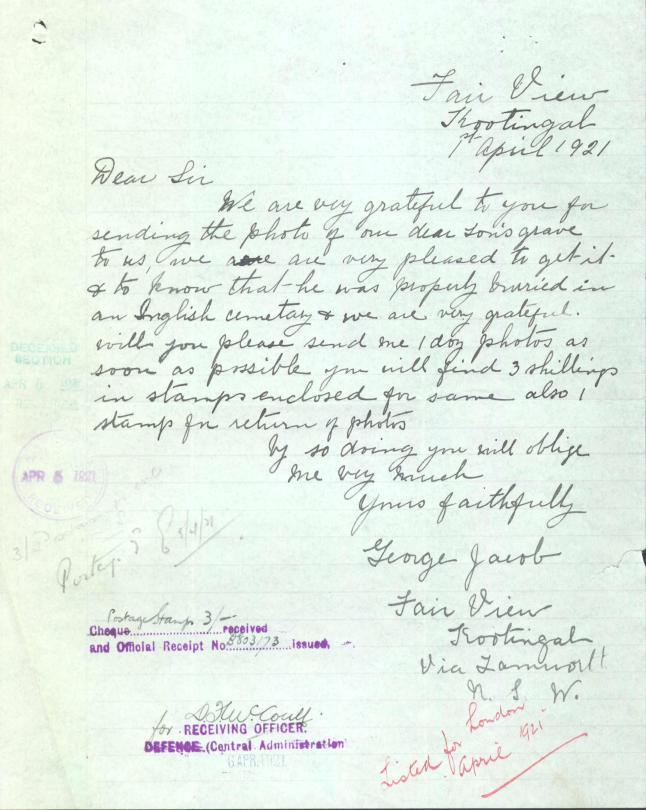 Fair View
Kootingal
1st April 1921
Dear Sir
We are very grateful to you for
sending the photo of our dear sons grave
to us, we are very pleased to get it
& to know that he was properly burried in
an Inglish cemetary & we are very grateful.
will you please send me 1 doz photos as
soon as possible you will find 3 shillings
in stamps enclosed for same also 1
stamp for return of photos
by so doing you will oblige
me very much
Yours faithfully
George Jacob
Fair View
Kootingal
Via Tamworth
N. S. W.
DECEASED
SECTION
APR 6
APR 5 1921
3/-
Postage Stamps 3/-
Cheque received
and Official Receipt No. 8803/73 issued,
for
RECEIVING OFFICER.
DEFENCE. (Central Administration)
6 APR. 1921
Listed for London
April 1921